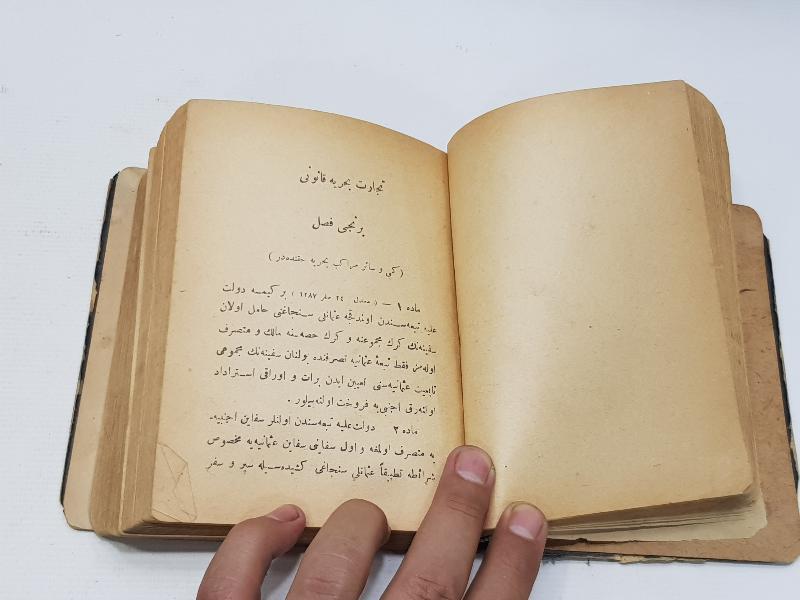 تجارت بحریه قانونی
برنجی فصل
(کمی و سائر مراکب بحریه حقنده‌در)
ماده ۱ — (معدل ۲٤ صفر ۱۲۸۷) بر کیمسه دولت
علیه تبعه‌سندن اولدقچه عثمانلی سنجاغنی حامل اولان
سفینه‌نك کرك مجموعنه و کرك حصه‌سنه مالك و متصرف
اوله‌مز فقط تبعهٔ عثمانیه تصرفنده بولنان سفینه‌نك مجموعی
تابعیت عثمانیه‌سنی تعیین ایدن برات و اوراقی استرداد
اولنه‌رق اجنبی‌یه فروخت اولنه‌بیلور .
ماده ۲ دولت‌علیه تبعه‌سندن اولنلر سفاین اجنبیه‌-
یه متصرف اولمغه و اول سفاینی سفاین عثمانیه‌یه مخصوص
شرائطه تطبیقاً عثمانلی سنجاغی کشیده‌سیله سیر و سفر